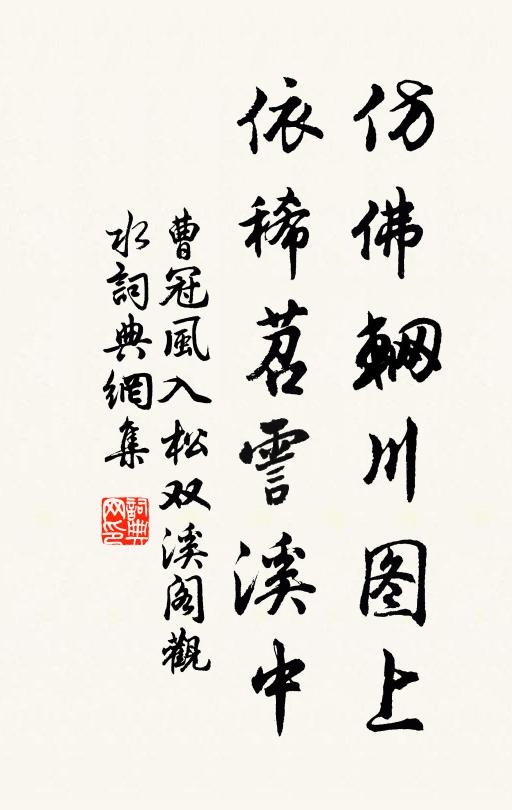 仿佛輞川图上
依稀苕霅溪中
曹冠風入松双溪阁觀
水詞典網集
詞典
网印